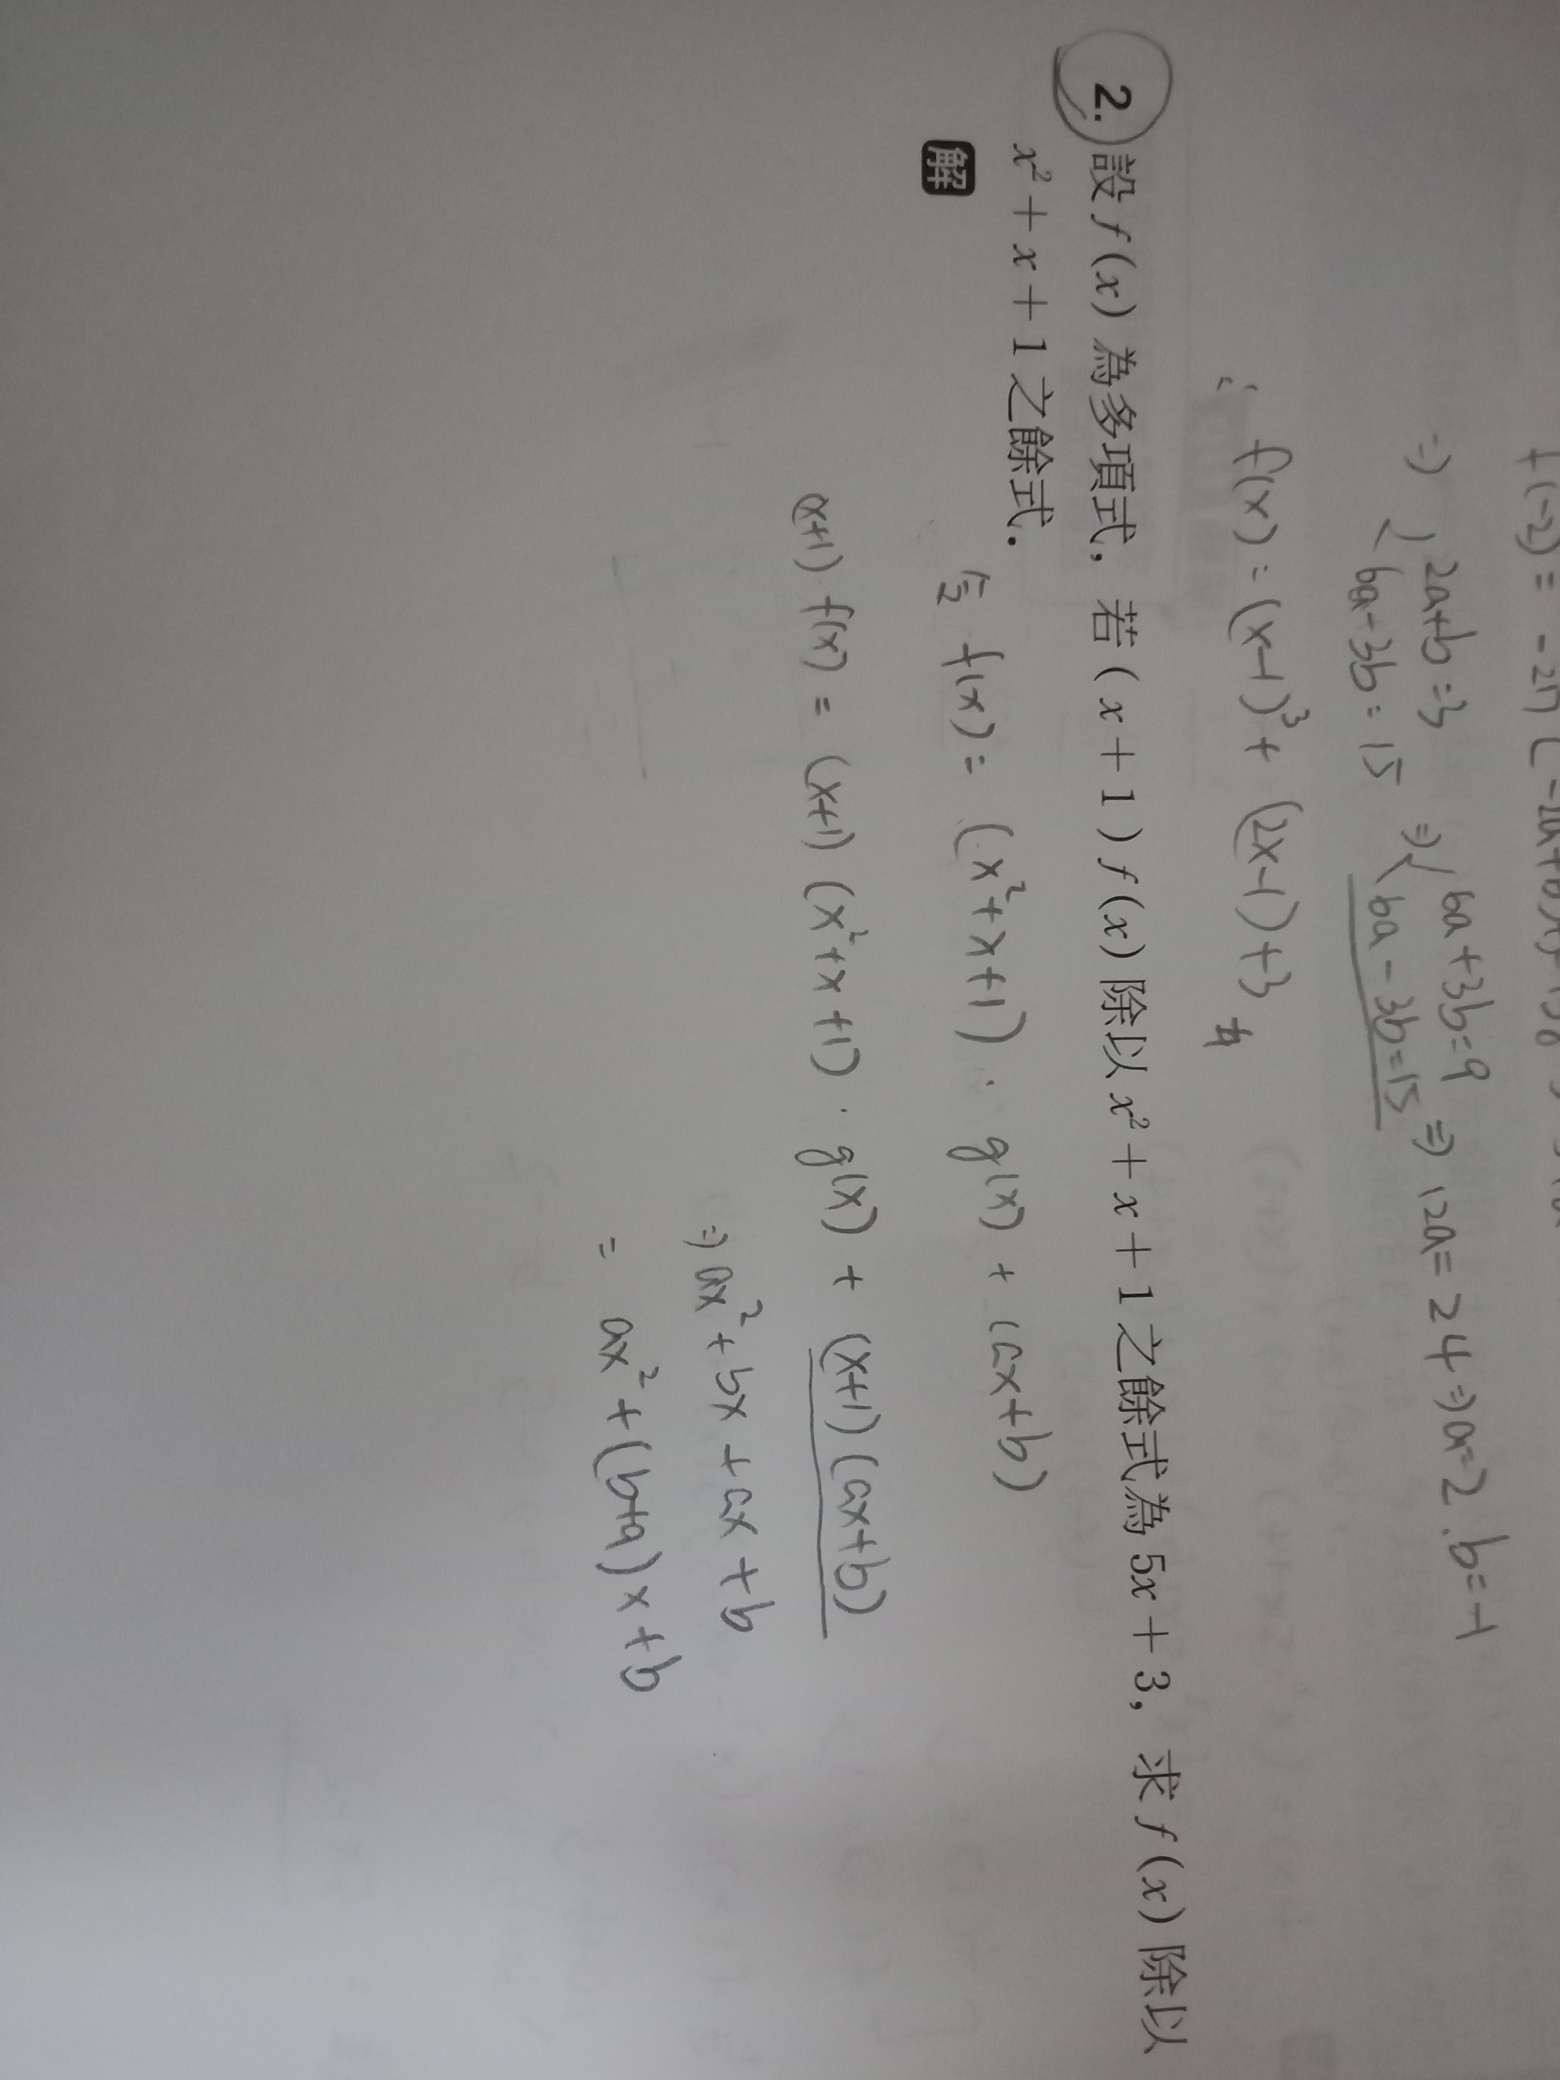 f(-2) = -27
⇒ { 2a+b=3 ⇒ { 6a+3b=9 ⇒ 12a=24 ⇒ a=2, b=-1
6a-3b=15 6a-3b=15
∴ f(x)=(x-1)³+(2x-1)+3 #
2. 設 f(x) 為多項式, 若 (x+1) f(x) 除以 x²+x+1 之餘式為 5x+3, 求 f(x) 除以
x²+x+1 之餘式.
解
令 f(x)= (x²+x+1)·g(x)+(ax+b)
(x+1)·f(x) = (x+1)(x²+x+1)·g(x)+(x+1)(ax+b)
⇒ ax²+bx+ax+b
= ax²+(b+a)x+b